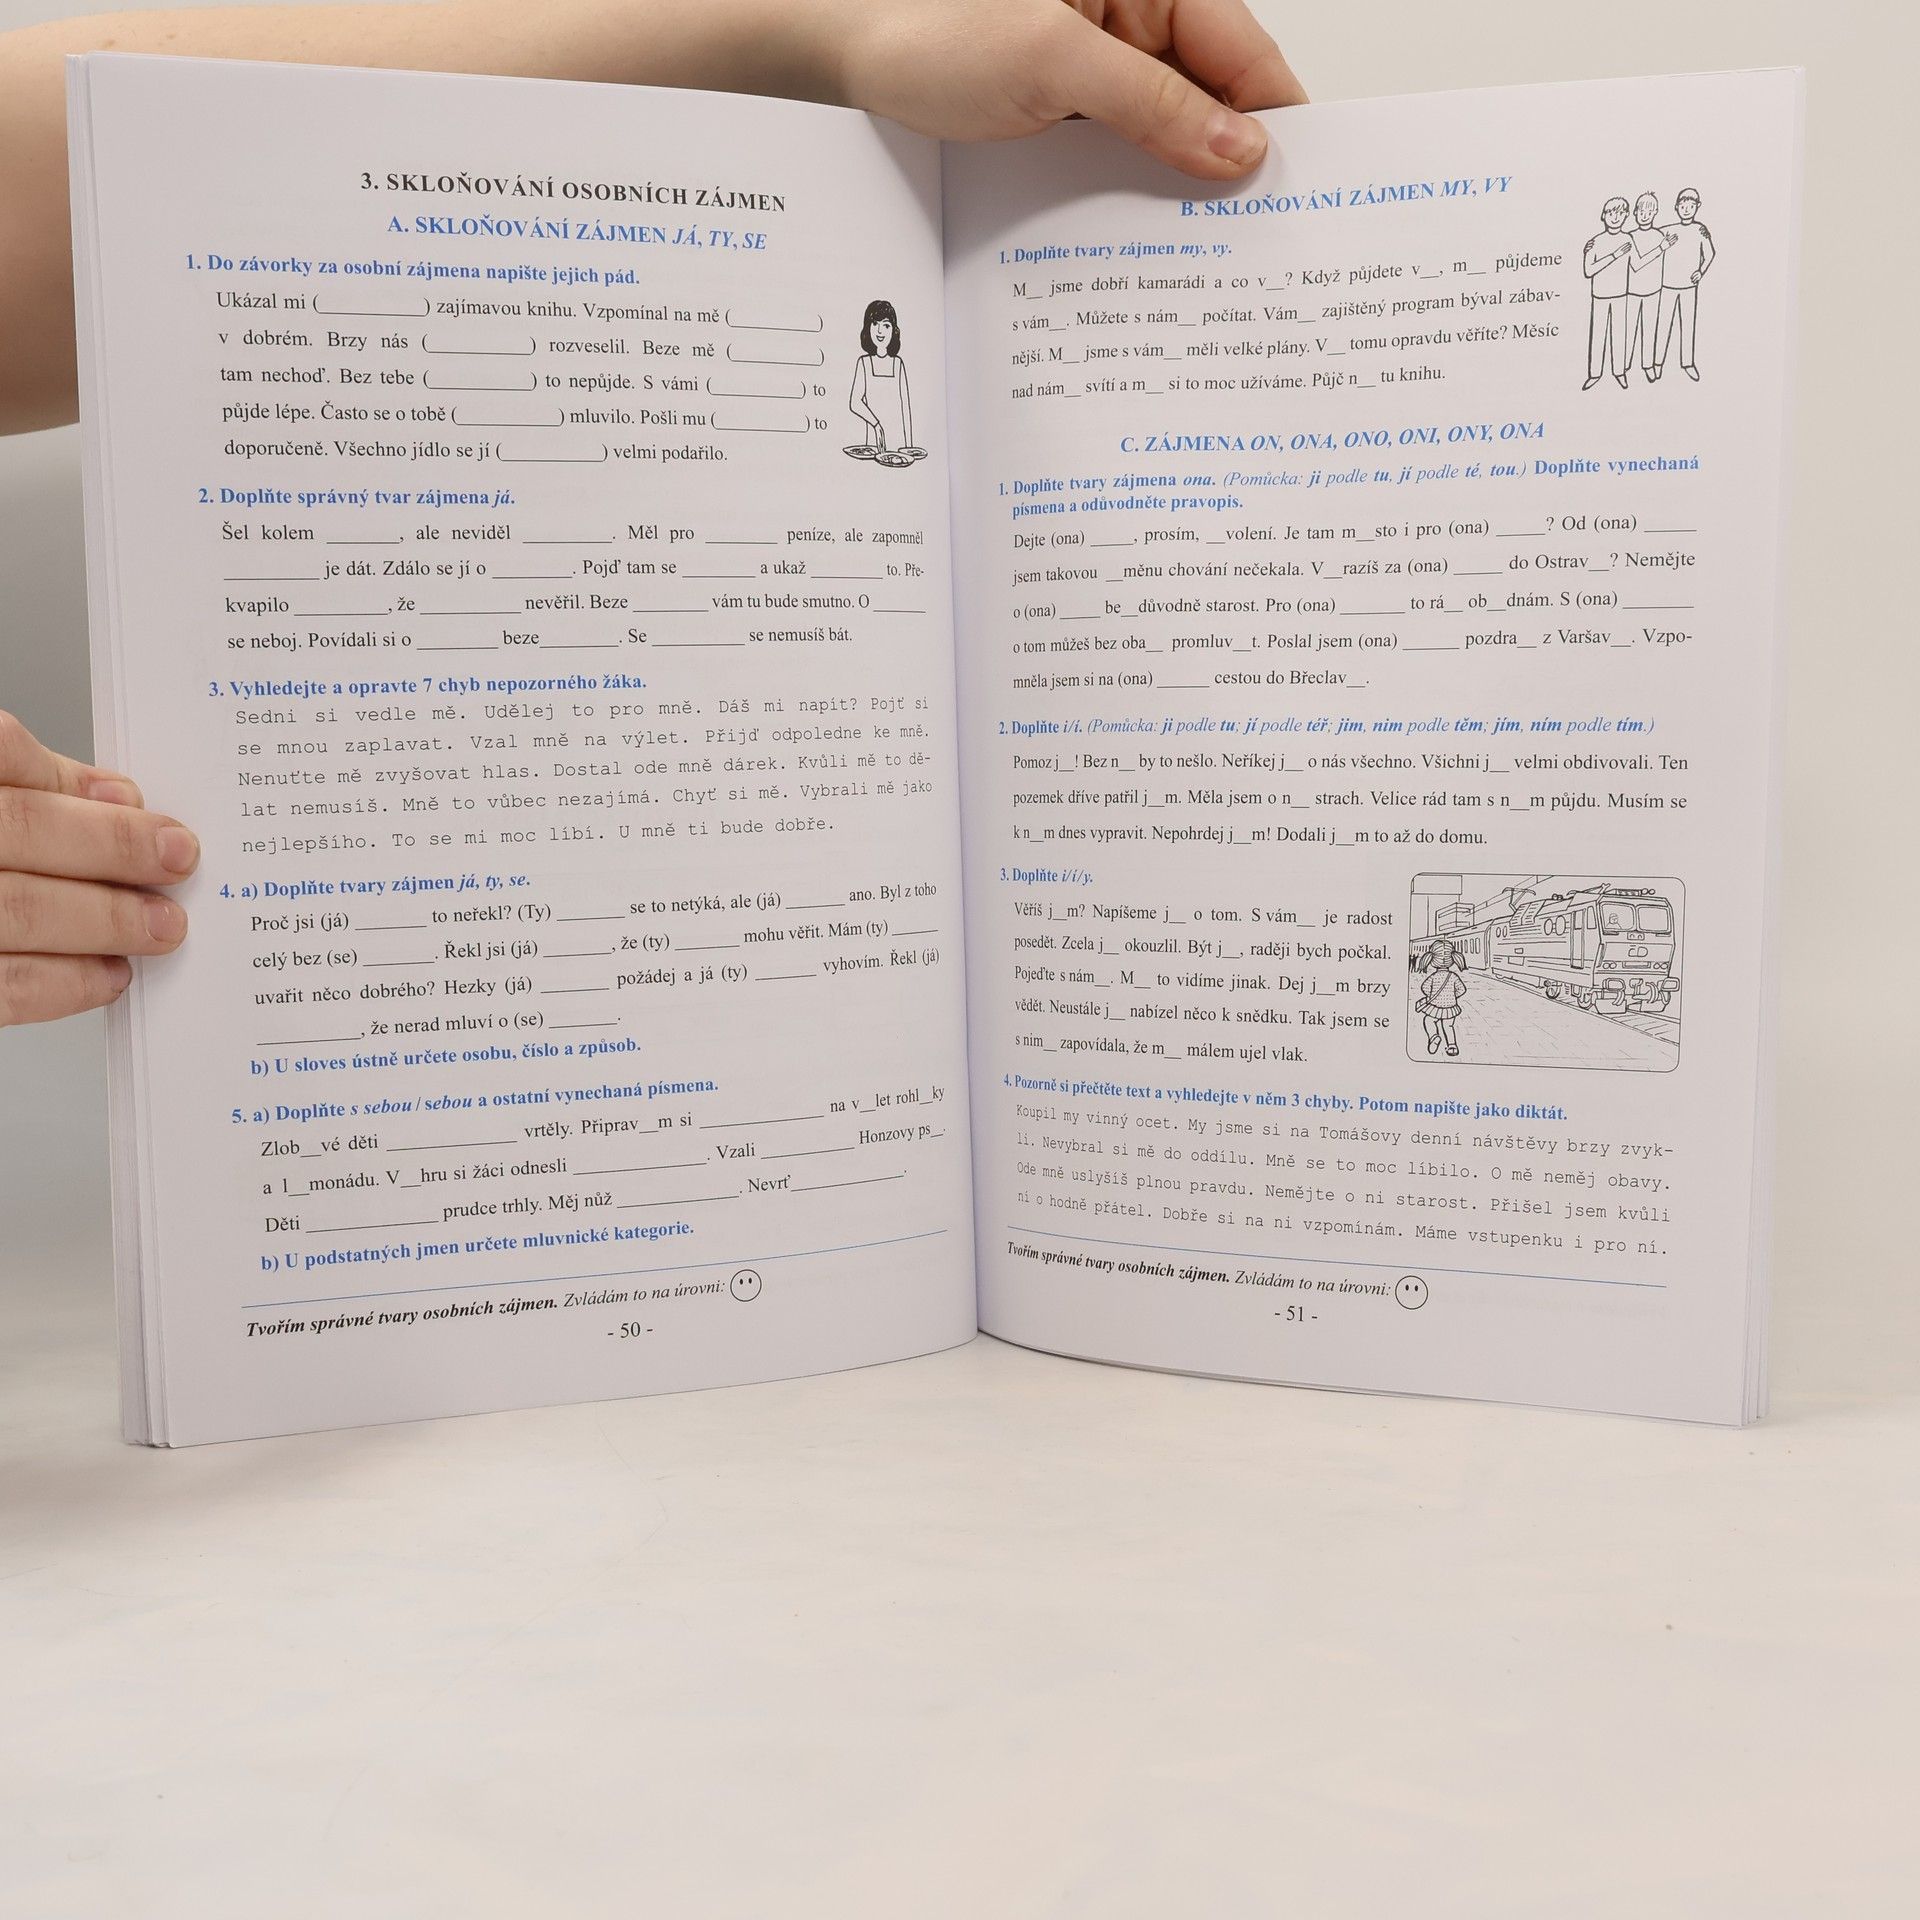 3. SKLOŇOVÁNÍ OSOBNÍCH ZÁJMEN
A. SKLOŇOVÁNÍ ZÁJMEN JÁ, TY, SE
1. Do závorky za osobní zájmena napište jejich pád.
Ukázal mi (__________) zajímavou knihu. Vzpomínal na mě (________)
v dobrém. Brzy nás (__________) rozveselil. Beze mě (________)
tam nechoď. Bez tebe (__________) to nepůjde. S vámi (________) to
půjde lépe. Často se o tobě (__________) mluvilo. Pošli mu (________) to
doporučeně. Všechno jídlo se jí (__________) velmi podařilo.
2. Doplňte správný tvar zájmena já.
Šel kolem _______, ale neviděl ________. Měl pro _______ peníze, ale zapomněl
_________ je dát. Zdálo se jí o ________. Pojď tam se _______ a ukaž _______ to. Pře-
kvapilo _________, že __________ nevěřil. Beze _______ vám tu bude smutno. O _____
se neboj. Povídali si o ________ beze________. Se _________ se nemusíš bát.
3. Vyhledejte a opravte 7 chyb nepozorného žáka.
Sedni si vedle mě. Udělej to pro mně. Dáš mi napít? Pojť si
se mnou zaplavat. Vzal mně na výlet. Přijď odpoledne ke mně.
Nenuťte mě zvyšovat hlas. Dostal ode mně dárek. Kvůli mě to dě-
lat nemusíš. Mně to vůbec nezajímá. Chyť si mě. Vybrali mě jako
nejlepšího. To se mi moc líbí. U mně ti bude dobře.
4. a) Doplňte tvary zájmen já, ty, se.
Proč jsi (já) _______ to neřekl? (Ty) _______ se to netýká, ale (já) ______ ano. Byl z toho
celý bez (se) _______. Řekl jsi (já) _______, že (ty) ______ mohu věřit. Mám (ty) _____
uvařit něco dobrého? Hezky (já) _______ požádej a já (ty) ______ vyhovím. Řekl (já)
__________, že nerad mluví o (se) _______.
b) U sloves ústně určete osobu, číslo a způsob.
5. a) Doplňte s sebou / sebou a ostatní vynechaná písmena.
Zlob__vé děti _____________ vrtěly. Připrav__m si ____________ na v__let rohl__ky
a l__monádu. V__hru si žáci odnesli _____________. Vzali _________ Honzovy ps__.
Děti _____________ prudce trhly. Měj nůž ____________. Nevrť___________.
b) U podstatných jmen určete mluvnické kategorie.
Tvořím správné tvary osobních zájmen. Zvládám to na úrovni:
- 50 -
B. SKLOŇOVÁNÍ ZÁJMEN MY, VY
1. Doplňte tvary zájmen my, vy.
M__ jsme dobří kamarádi a co v__? Když půjdete v__, m__ půjdeme
s vám__. Můžete s nám__ počítat. Vám__ zajištěný program býval zábav-
nější. M__ jsme s vám__ měli velké plány. V__ tomu opravdu věříte? Měsíc
nad nám__ svítí a m__ si to moc užíváme. Půjč n__ tu knihu.
C. ZÁJMENA ON, ONA, ONO, ONI, ONY, ONA
1. Doplňte tvary zájmena ona. (Pomůcka: ji podle tu, jí podle té, tou.) Doplňte vynechaná
písmena a odůvodněte pravopis.
Dejte (ona) _____, prosím, __volení. Je tam m__sto i pro (ona) _____? Od (ona) _____
jsem takovou __měnu chování nečekala. V__razíš za (ona) _____ do Ostrav__? Nemějte
o (ona) _____ be__důvodně starost. Pro (ona) _______ to rá__ ob__dnám. S (ona) _______
o tom můžeš bez oba__ promluv__t. Poslal jsem (ona) ______ pozdra__ z Varšav__. Vzpo-
mněla jsem si na (ona) ______ cestou do Břeclav__.
2. Doplňte i/í. (Pomůcka: ji podle tu; jí podle téř; jim, nim podle těm; jím, ním podle tím.)
Pomoz j__! Bez n__ by to nešlo. Neříkej j__ o nás všechno. Všichni j__ velmi obdivovali. Ten
pozemek dříve patřil j__m. Měla jsem o n__ strach. Velice rád tam s n__m půjdu. Musím se
k n__m dnes vypravit. Nepohrdej j__m! Dodali j__m to až do domu.
3. Doplňte i/í/y.
Věříš j__m? Napíšeme j__ o tom. S vám__ je radost
posedět. Zcela j__ okouzlil. Být j__, raději bych počkal.
Pojeďte s nám__. M__ to vidíme jinak. Dej j__m brzy
vědět. Neustále j__ nabízel něco k snědku. Tak jsem se
s nim__ zapovídala, že m__ málem ujel vlak.
4. Pozorně si přečtěte text a vyhledejte v něm 3 chyby. Potom napište jako diktát.
Koupil my vinný ocet. My jsme si na Tomášovy denní návštěvy brzy zvyk-
li. Nevybral si mě do oddílu. Mně se to moc líbilo. O mě neměj obavy.
Ode mně uslyšíš plnou pravdu. Nemějte o ni starost. Přišel jsem kvůli
ní o hodně přátel. Dobře si na ni vzpomínám. Máme vstupenku i pro ní.
Tvořím správné tvary osobních zájmen. Zvládám to na úrovni:
- 51 -